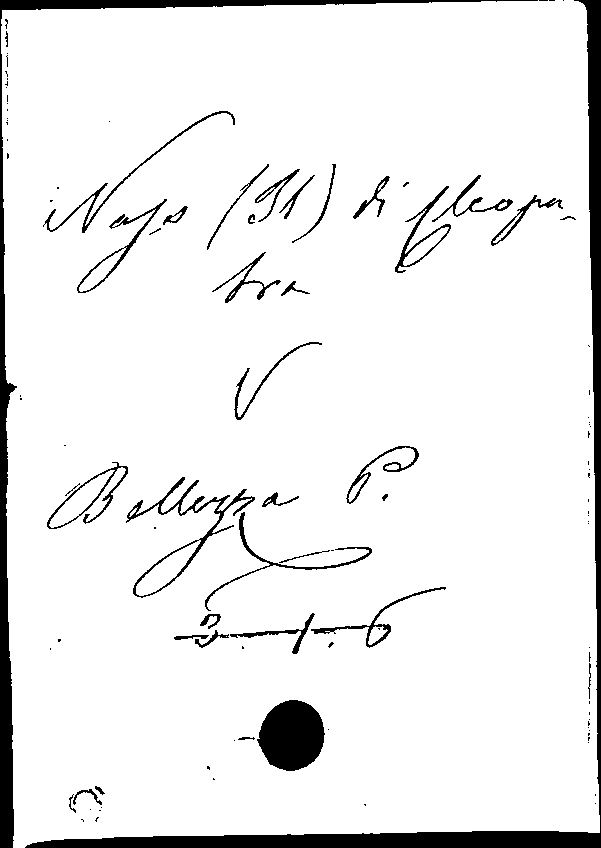 Naso (Il) di Cleopa-
tra
V
Bellezza P.
3 - 1. 6